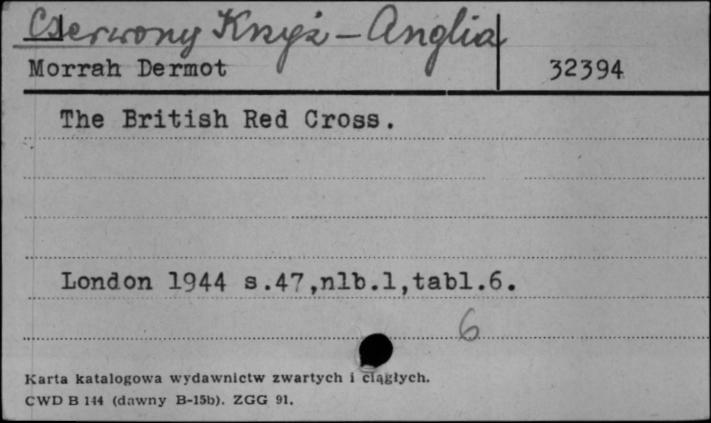 Czerwony Krzyż - Anglia
Morrah Dermot 32394
The British Red Cross.
London 1944 s.47,nlb.1,tabl.6.
6
Karta katalogowa wydawnictw zwartych i ciągłych.
CWD B 144 (dawny B-15b). ZGG 91.